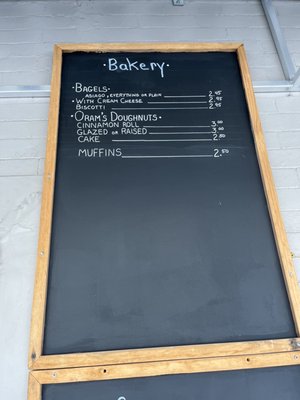 ·Bakery·
·Bagels·
Asiago, Everything or Plain 2.95
·With Cream Cheese 2.95
Biscotti 2.95
·Oram's Doughnuts·
Cinnamon Roll 3.00
Glazed or Raised 3.00
Cake 2.50
Muffins 2.50